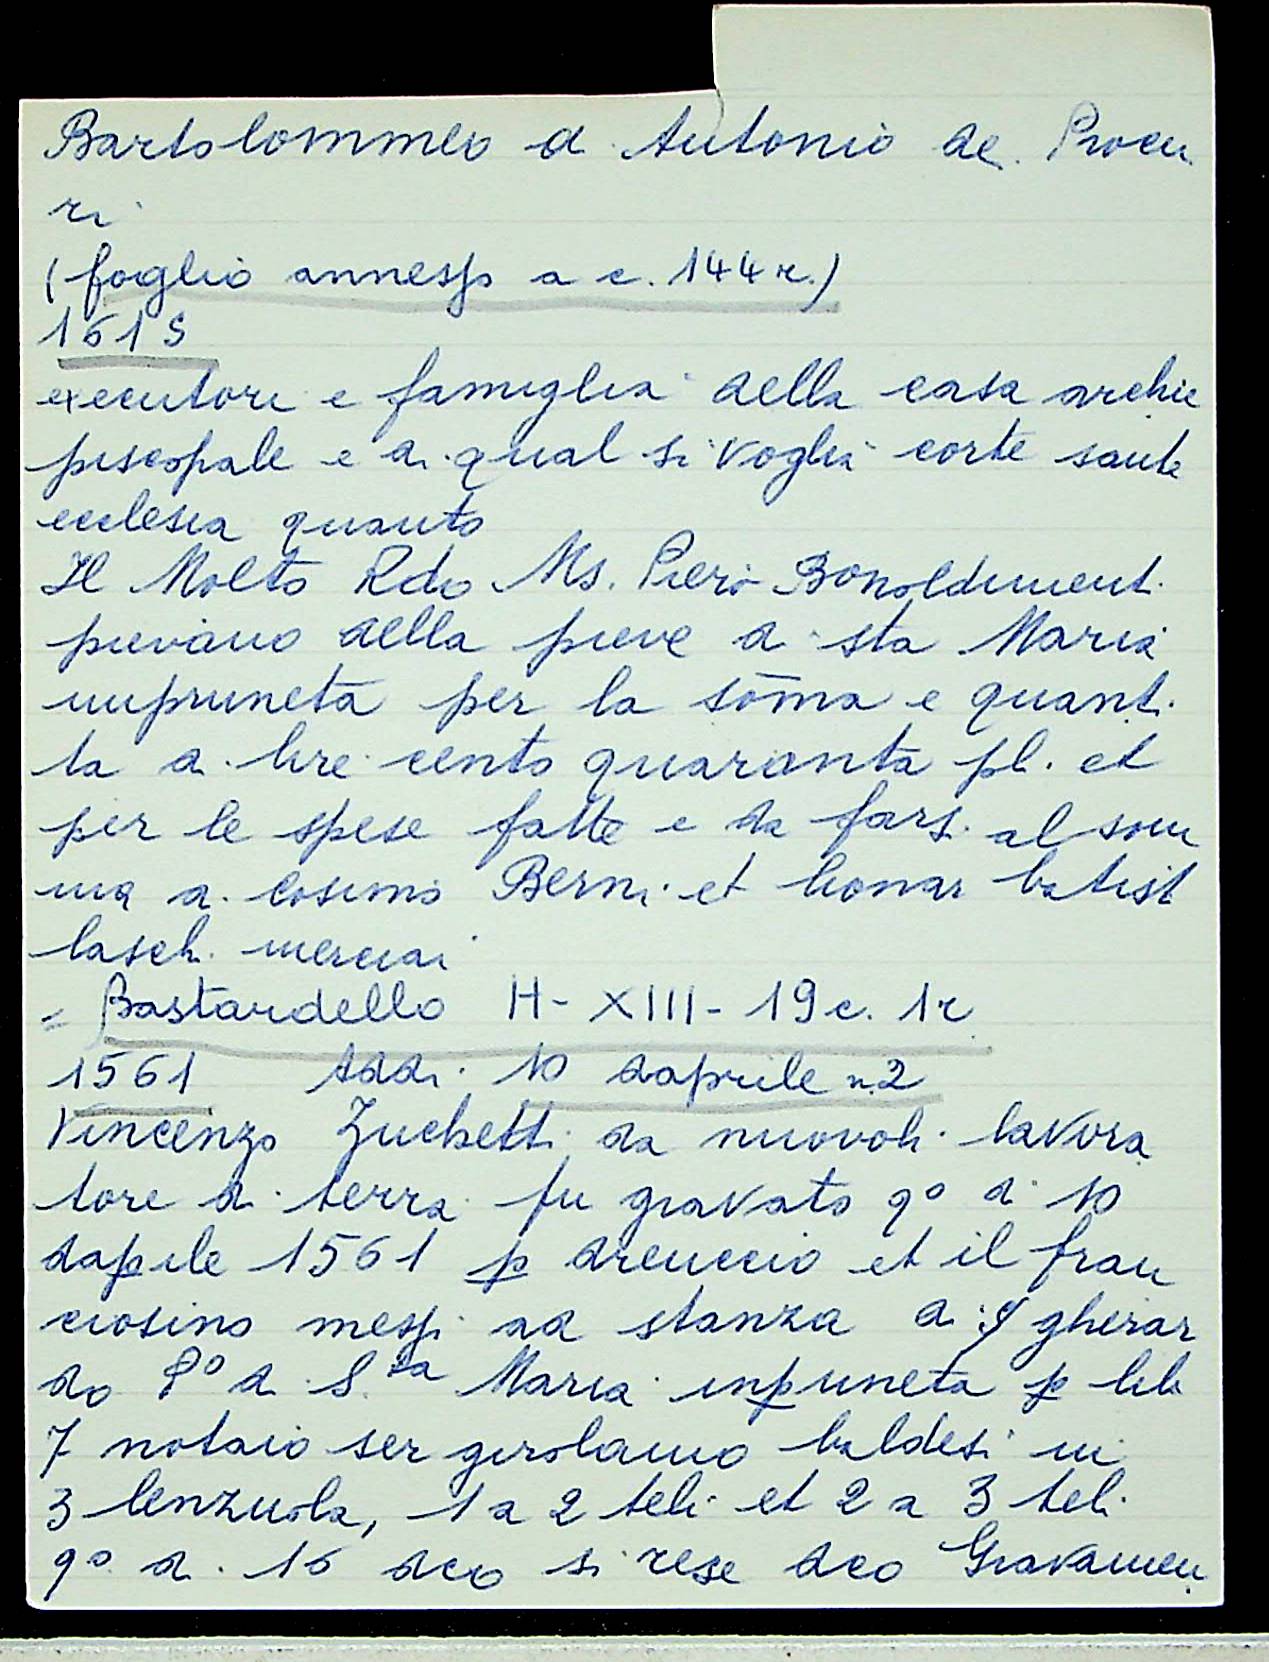 Bartolommeo di Antonio de. Procu
ri
(foglio annesso a c. 144 r.)
161S
executori e famiglia della casa archie
piscopale e di qual si voglia corte sante
ecclesia quanto
Il Molto Rdo Ms. Piero
pievano della pieve di sta Maria
impruneta per la sōma e quanti
ta di lire cento quaranta pl. et
per le spese fatte e da farsi al som
ma di Cosimo Berni et lionar batist
merciai
= Bastardello H - XIII - 19 c. 1r
1561 Addi 10 daprile n. 2
Vincenzo Zuchetti da nuovoli lavora
tore di terra fu gravato q° di 10
daprile 1561 p et il fran
ciosino messi ad stanza di gherar
do P° di S.ta Maria inpruneta p lib
7 notaio ser girolamo baldesi in
3 lenzuola, 1 a 2 teli et 2 a 3 teli
q° di 16 dco si rese dco Gravamen